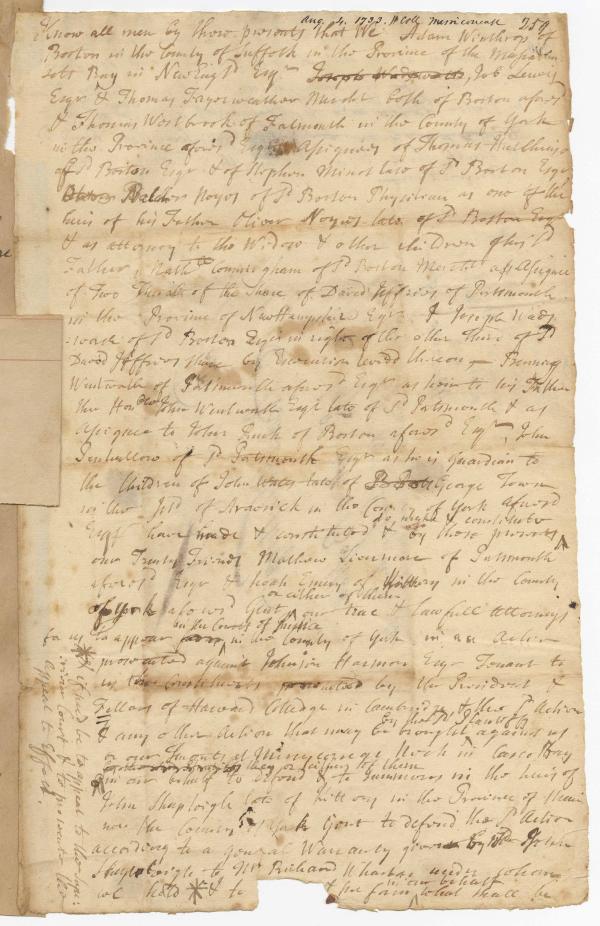 Aug. 4. 1733. H Coll Merriconeak 259
Know all men by these presents that We Adam Winthrop of
Boston in the County of Suffolk in the Province of the Massachu
setts Bay in New Engld Esqr Joseph Wadsworth, Job Lewis
Esqr & Thomas Fayerweather Mercht both of Boston aforesd
& Thomas Westbrook of Falmouth in the County of York
in the Province aforesd Esqr Assignees of Thomas Hutchinson
of sd Boston Esqr & of Stephen Minot late of sd Boston Esqr
Noyes of sd Boston Physician as one of the
heirs of his Father Oliver Noyes late of sd Boston Esqr
& as attorney to the Widow & other children of his sd
Father, Nathll Cunningham of sd Boston Mercht as Assignee
of Two Thirds of the Share of David Jeffries of Portsmouth
in the Province of New Hampshire Esqr & Joseph Wads
-worth of sd Boston Esqr in right of the other third of sd
David Jeffries share by Execution levied thereon Benning
Wentworth of Portsmouth aforesd Esqr as heir to his Father
the Honble John Wentworth Esqr late of sd Portsmouth & as
Assignee to John Ruck of Boston aforesd Esqr, John
Penhallow of sd Portsmouth Esqr as he is Guardian to
the Children of John Watts late of George Town
in the of Arrowick in the County of York aforesd
Esqr have made & constituted & do make & constitute by these presents
our Trusty Friends Mathew Livermore of Portsmouth
aforesd Esqr & Noah Emery of Kittery in the County
of York aforesd Gent or either of them our true & lawfull attorneys
for us to appear in the Courts of Justice in the County of York in an Action
prosecuted against Johnson Harmon Esqr Tenant to
us the Constituents by the President &
Fellows of Harvard Colledge in Cambridge to the sd Action
& any other Action that may be brought against us by the sd Plantiffs
or our Tenants at Merryconege Neck in Casco Bay
in our behalf they or either of them to defend & to summons in the heirs of
John Shapleigh late of Kittery in the Province of Main
now the County of York Gent to defend the sd Action
according to a General Warranty given by John
Shapleigh to Mr Richard Wharton under whom
we hold * & to in our behalf what shall be
* if need be to appeal to the Super:
iour Court & to prosecute the
Appeal to Effect.